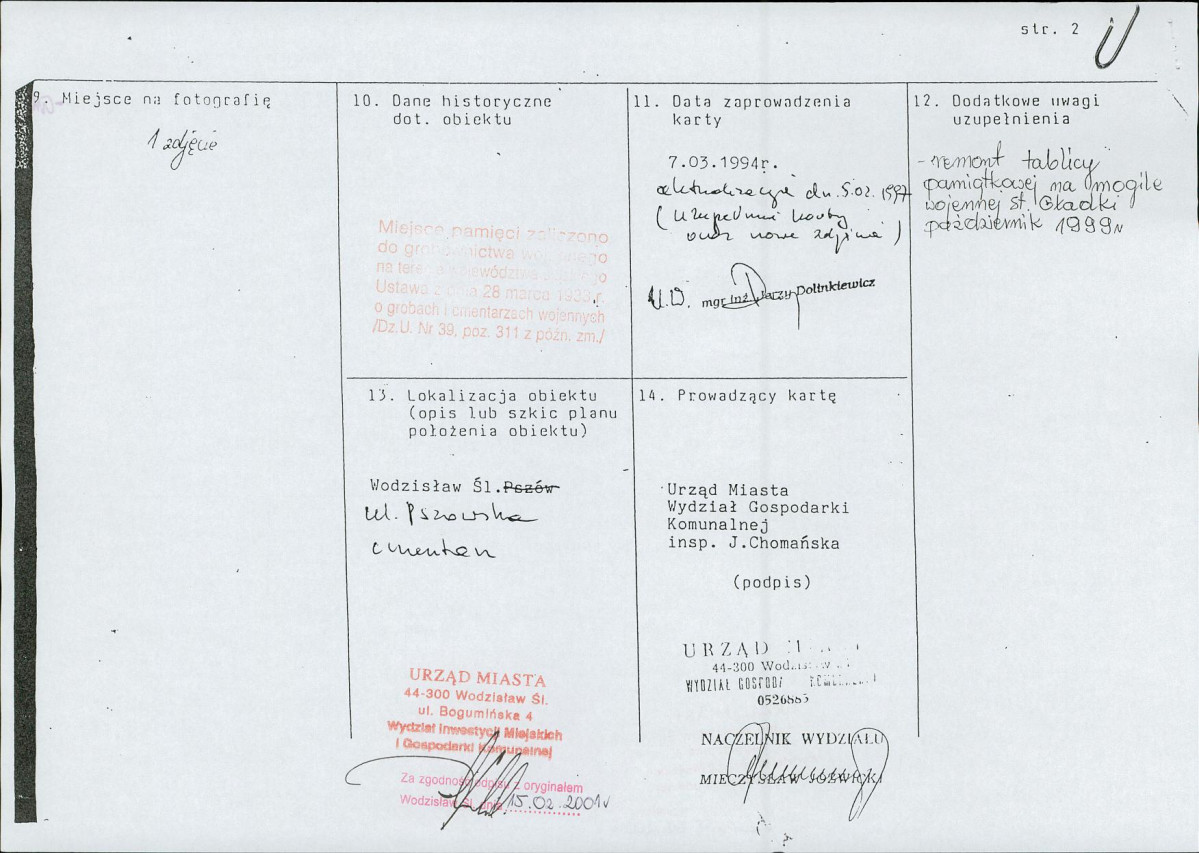 str. 2
9. Miejsce na fotografię
1 zdjęcie
10. Dane historyczne
dot. obiektu
Miejsce pamięci zaliczono
do grobownictwa wojennego
na terenie województwa
Ustawa z dnia 28 marca 1933 r.
o grobach i cmentarzach wojennych
/Dz.U. Nr 39, poz. 311 z późn. zm./
11. Data zaprowadzenia
karty
7.03.1994r.
aktualizacja dn. 5.02.1997
( Uzupełnić karty
oraz nowe zdjęcia )
mgr inż. Jerzy
12. Dodatkowe uwagi
uzupełnienia
- remont tablicy
pamiątkowej na mogile
wojennej St. Gładki
październik 1999r
13. Lokalizacja obiektu
(opis lub szkic planu
położenia obiektu)
Wodzisław Śl. Pszów
ul. Pszowska
cmentarz
URZĄD MIASTA
44-300 Wodzisław Śl.
ul. Bogumińska 4
Wydział Inwestycji Miejskich
i Gospodarki Komunalnej
Za zgodność odpisu z oryginałem
Wodzisław Śl. dnia 15.02.2001r
14. Prowadzący kartę
Urząd Miasta
Wydział Gospodarki
Komunalnej
insp. J.Chomańska
(podpis)
URZĄD
44-300
WYDZIAŁ
0526885
NACZELNIK WYDZIAŁU
MIECZYSŁAW JÓŹWICKI